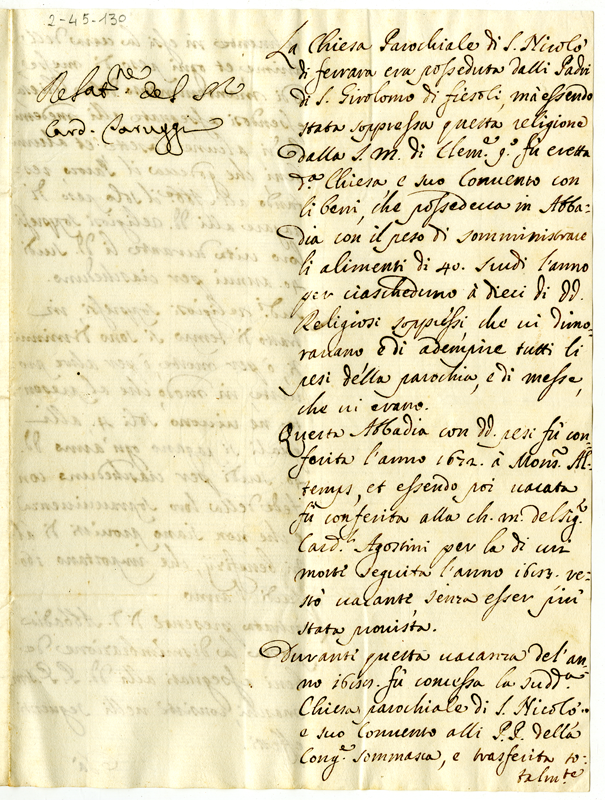 2-45-130
Relat.ne del Sr
Card. Caruggi
La Chiesa Parochiale di S. Nicolò
di ferrara era posseduta dalli Padri
di S. Girolomo di fiesoli, mà essendo
stata soppressa questa religione
dalla S. M. di Clem.e 9.o fù eretta
d.a Chiesa e suo Convento con
li beni, che possedeua in Abba-
dia con il peso di somministrare
li alimenti di 40. scudi l'anno
per ciascheduno à dieci di dd.
Religiosi soppressi che ui dimo-
rauano e di adempire tutti li
pesi della parochia, e di messe,
che ui erano.
Questa Abbadia con dd. pesi fù con-
ferita l'anno 1672. à Mons.r Al-
temps, et essendo poi uacata
fù conferita alla ch. m. del sig.r
Card.l Agostini per la di cui
morte seguita l'anno re-
stò uacante senza esser più
stata prouista.
Durante questa uacanza del'an-
no fù concessa la sudd.a
Chiesa parochiale di S. Nicolò
e suo Conuento alli P.P. della
Cong.e sommasca, e trasferita to-
talm.te